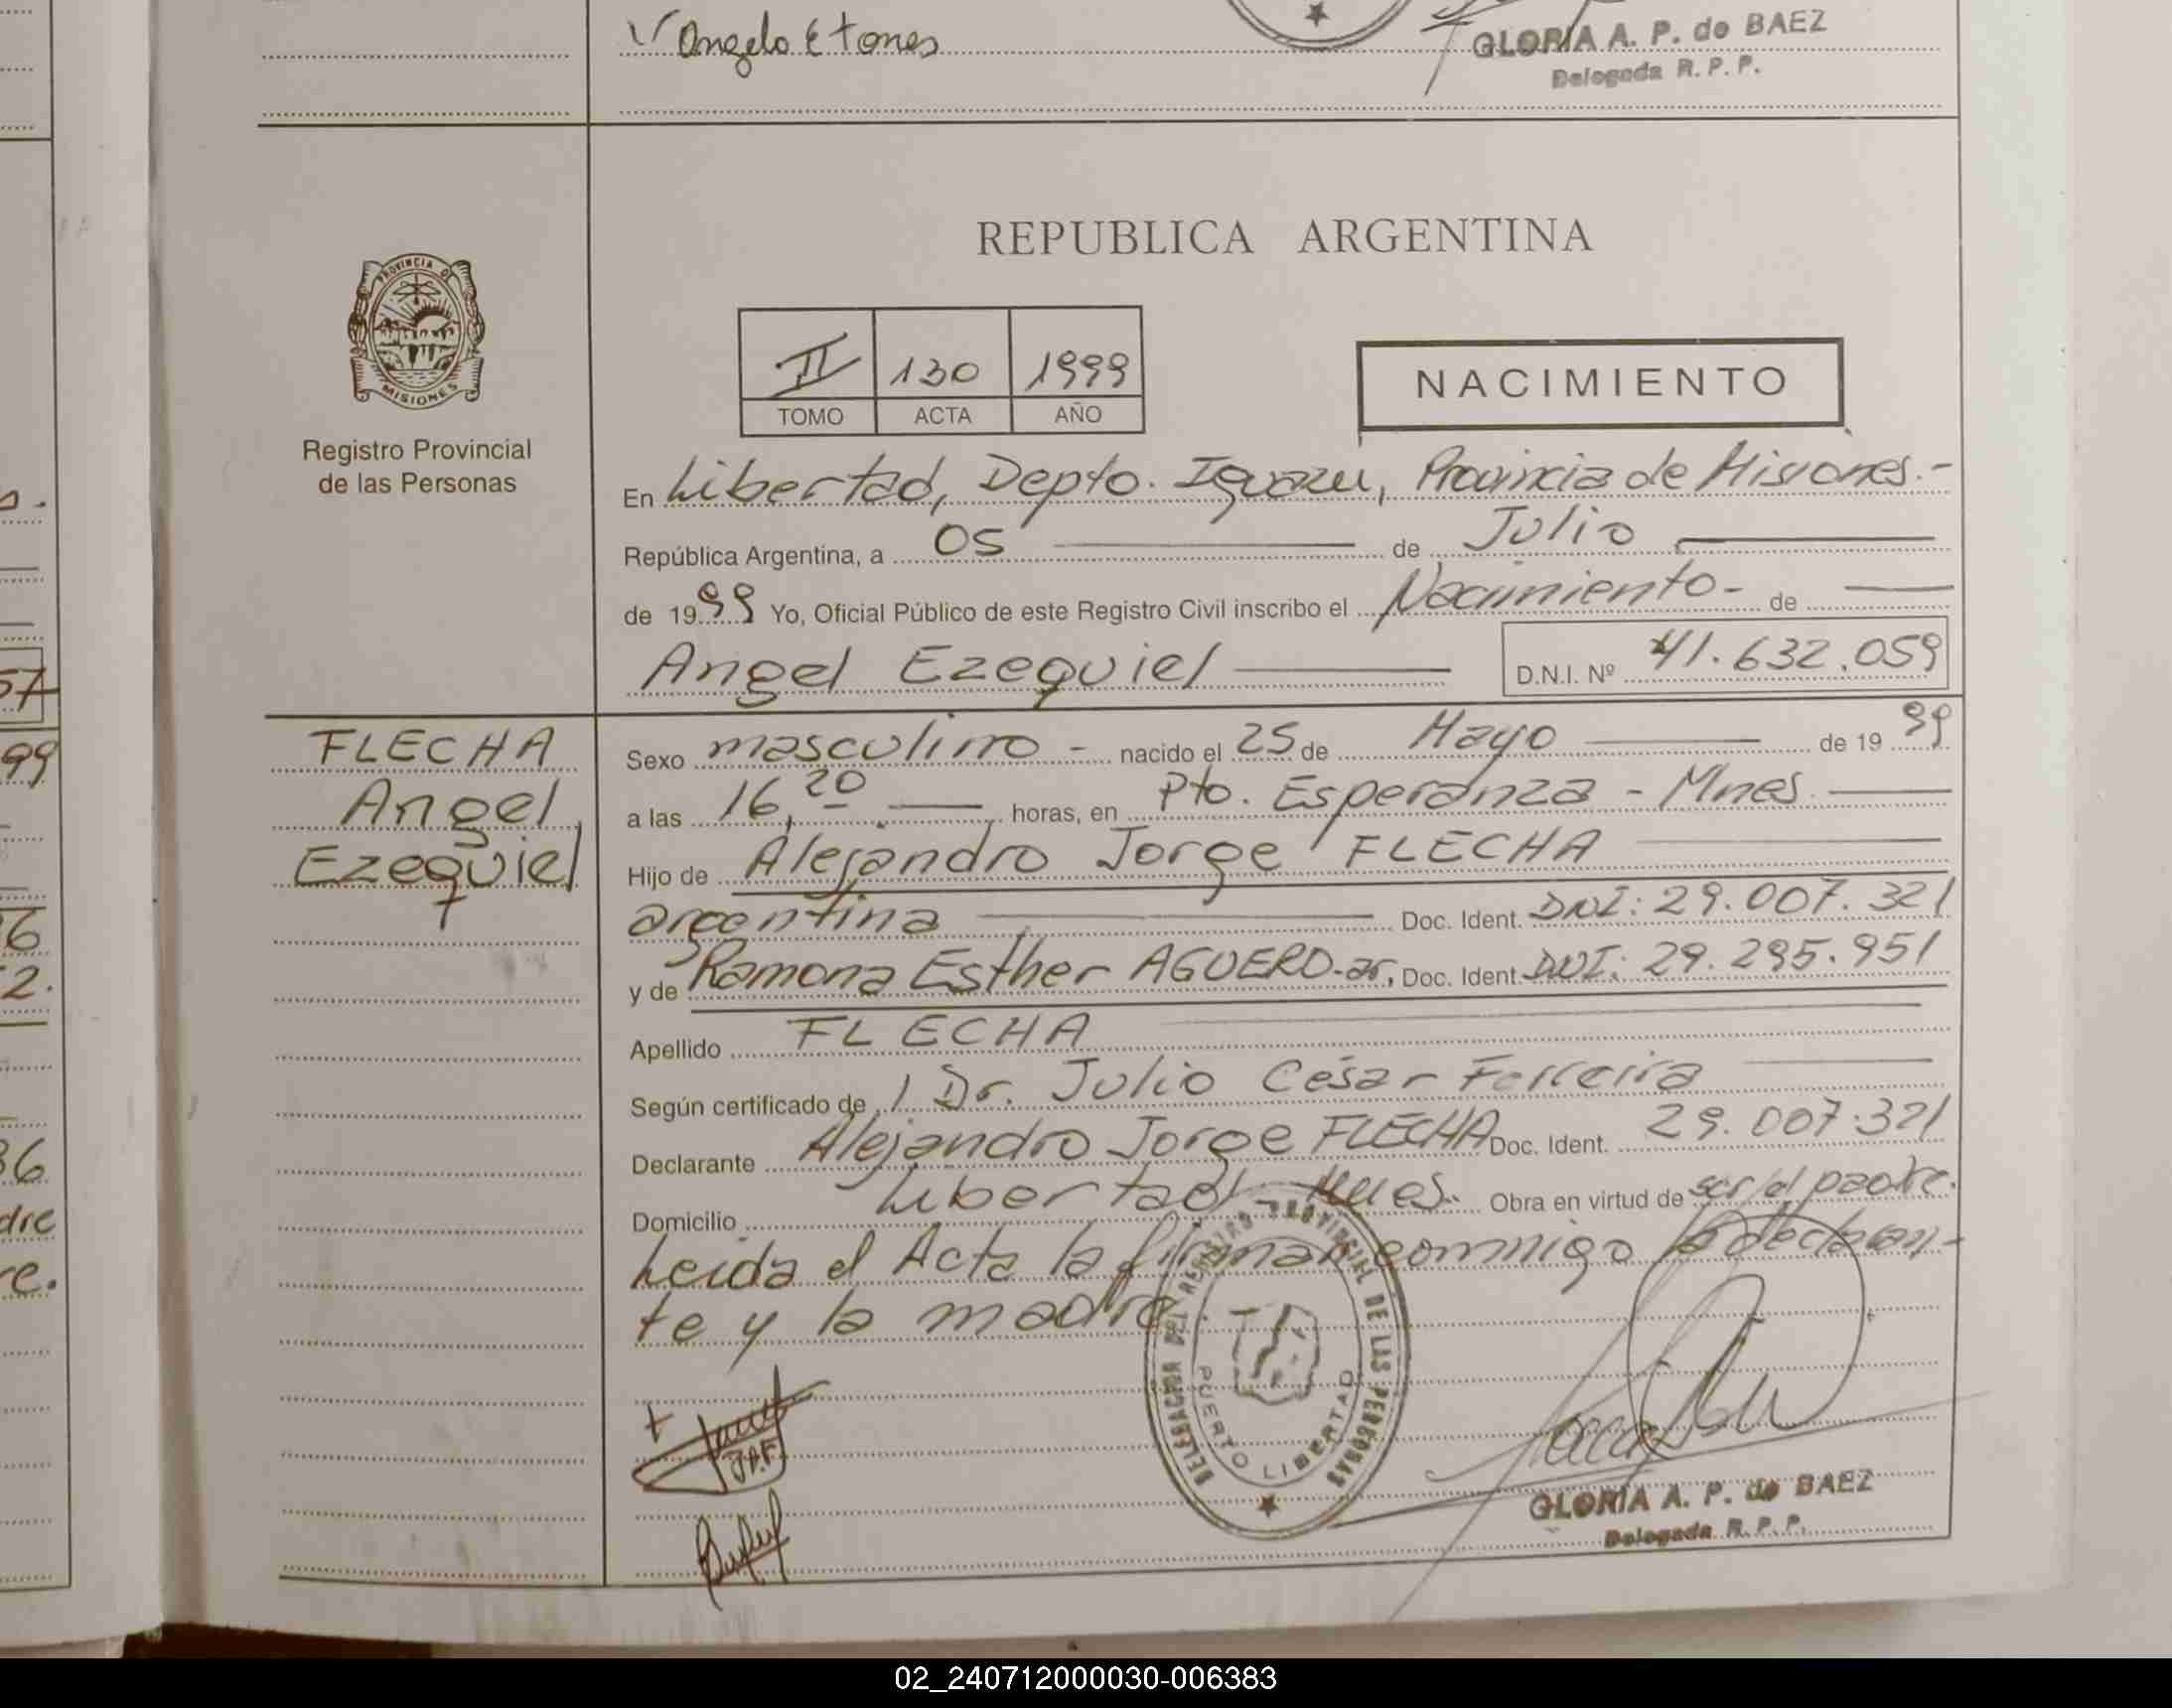 V Angela E tones
GLORIA A. P. de BAEZ
Delegada R. P. P.
REPUBLICA ARGENTINA
PROVINCIA DE
MISIONES
Registro Provincial
de las Personas
II 130 1999
TOMO ACTA AÑO
NACIMIENTO
En Libertad, Depto. Iguazu, Provincia de Misiones.-
República Argentina, a 05 de Julio
de 1999 Yo, Oficial Público de este Registro Civil inscribo el Nacimiento - de
Angel Ezequiel
D.N.I. Nº 41.632.059
FLECHA
Angel
Ezequiel
Sexo masculino - nacido el 25 de Mayo de 19 99
a las 16,20 horas, en Pto. Esperanza - Mnes.
Hijo de Alejandro Jorge FLECHA
argentina Doc. Ident. DNI: 29.007.321
y de Ramona Esther AGUERO-ar, Doc. Ident. DNI: 29.295.951
Apellido FLECHA
Según certificado de Dr. Julio César Ferreira
Declarante Alejandro Jorge FLECHA Doc. Ident. 29.007.321
Domicilio Libertad - Mnes. Obra en virtud de ser el padre.
Leida el Acta la firman conmigo la declaran-
te y la madre.
J.A.F
DELEGACION DEL REGISTRO PROVINCIAL DE LAS PERSONAS
PUERTO LIBERTAD
GLORIA A. P. de BAEZ
Delegada R. P. P.
57
99
6
2.
36
dre
re.
02_240712000030-006383